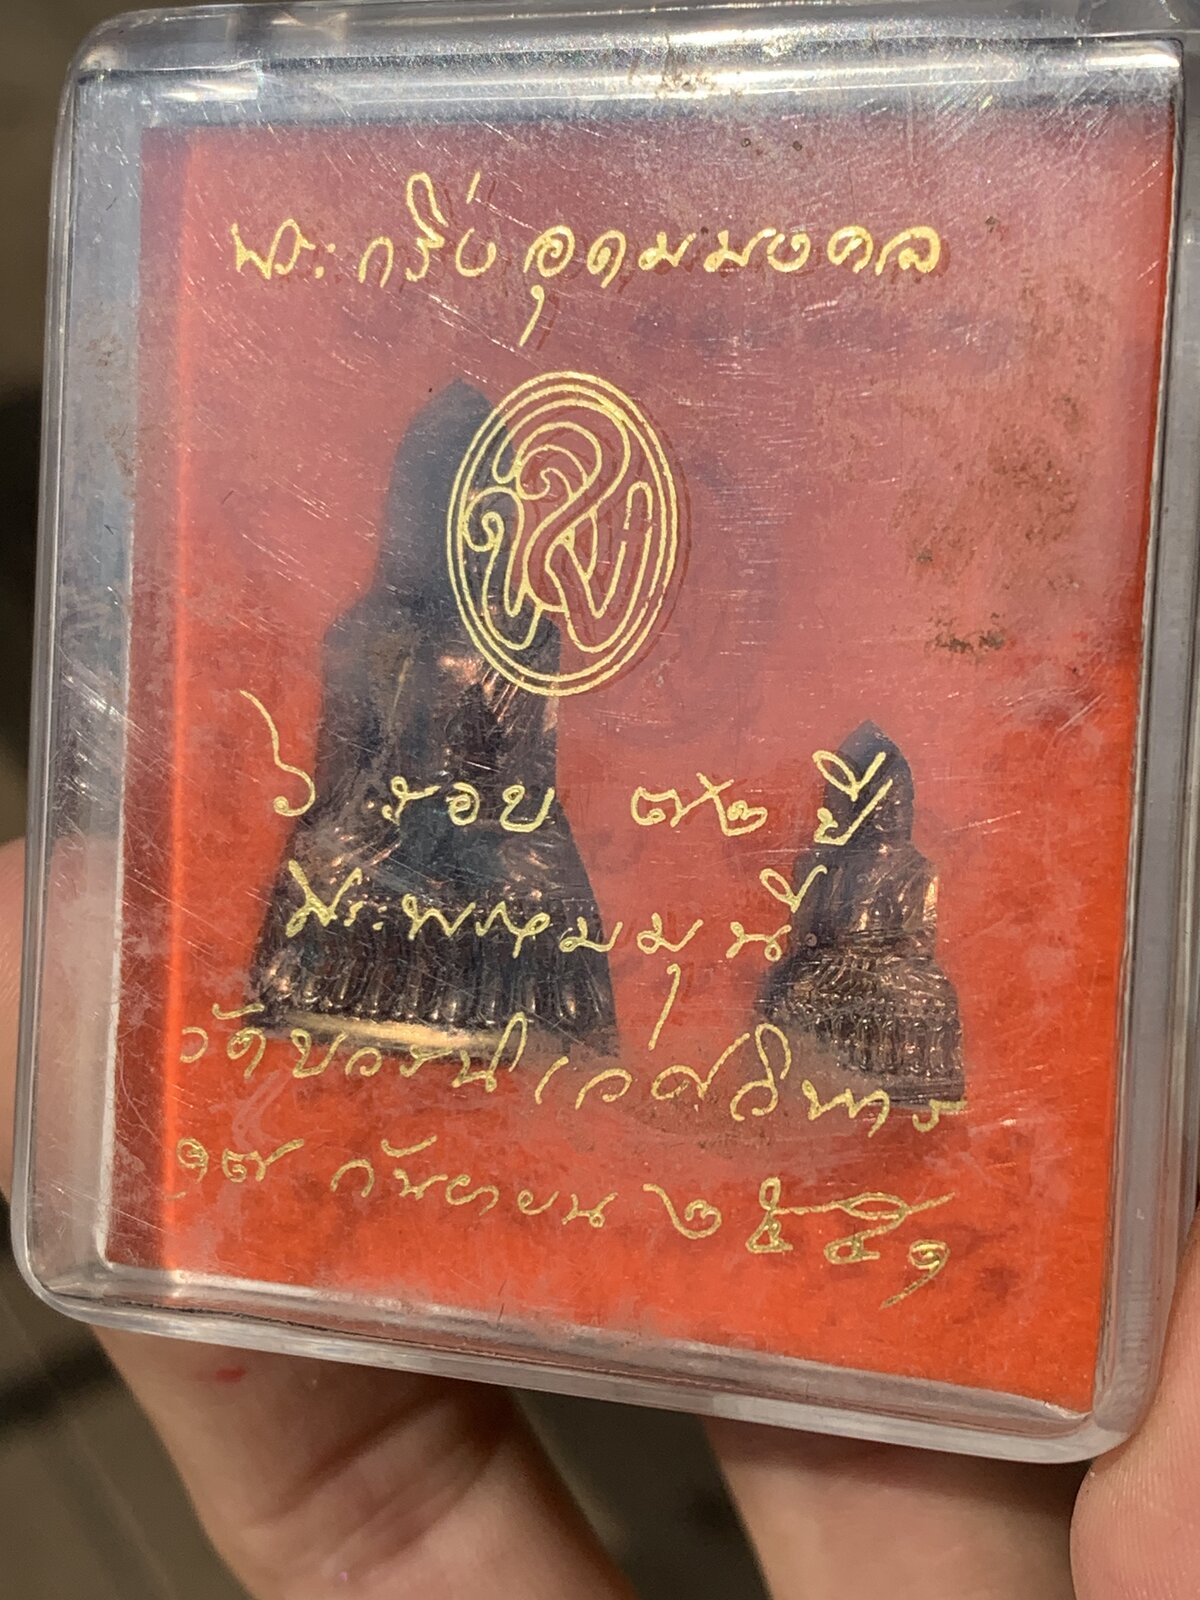 พระกริ่งอุดมมงคล
๖ รอบ ๗๒ ปี
พระพรหมมุนี
วัดบวรนิเวศวิหาร
๑๗ กันยายน ๒๕๕๑